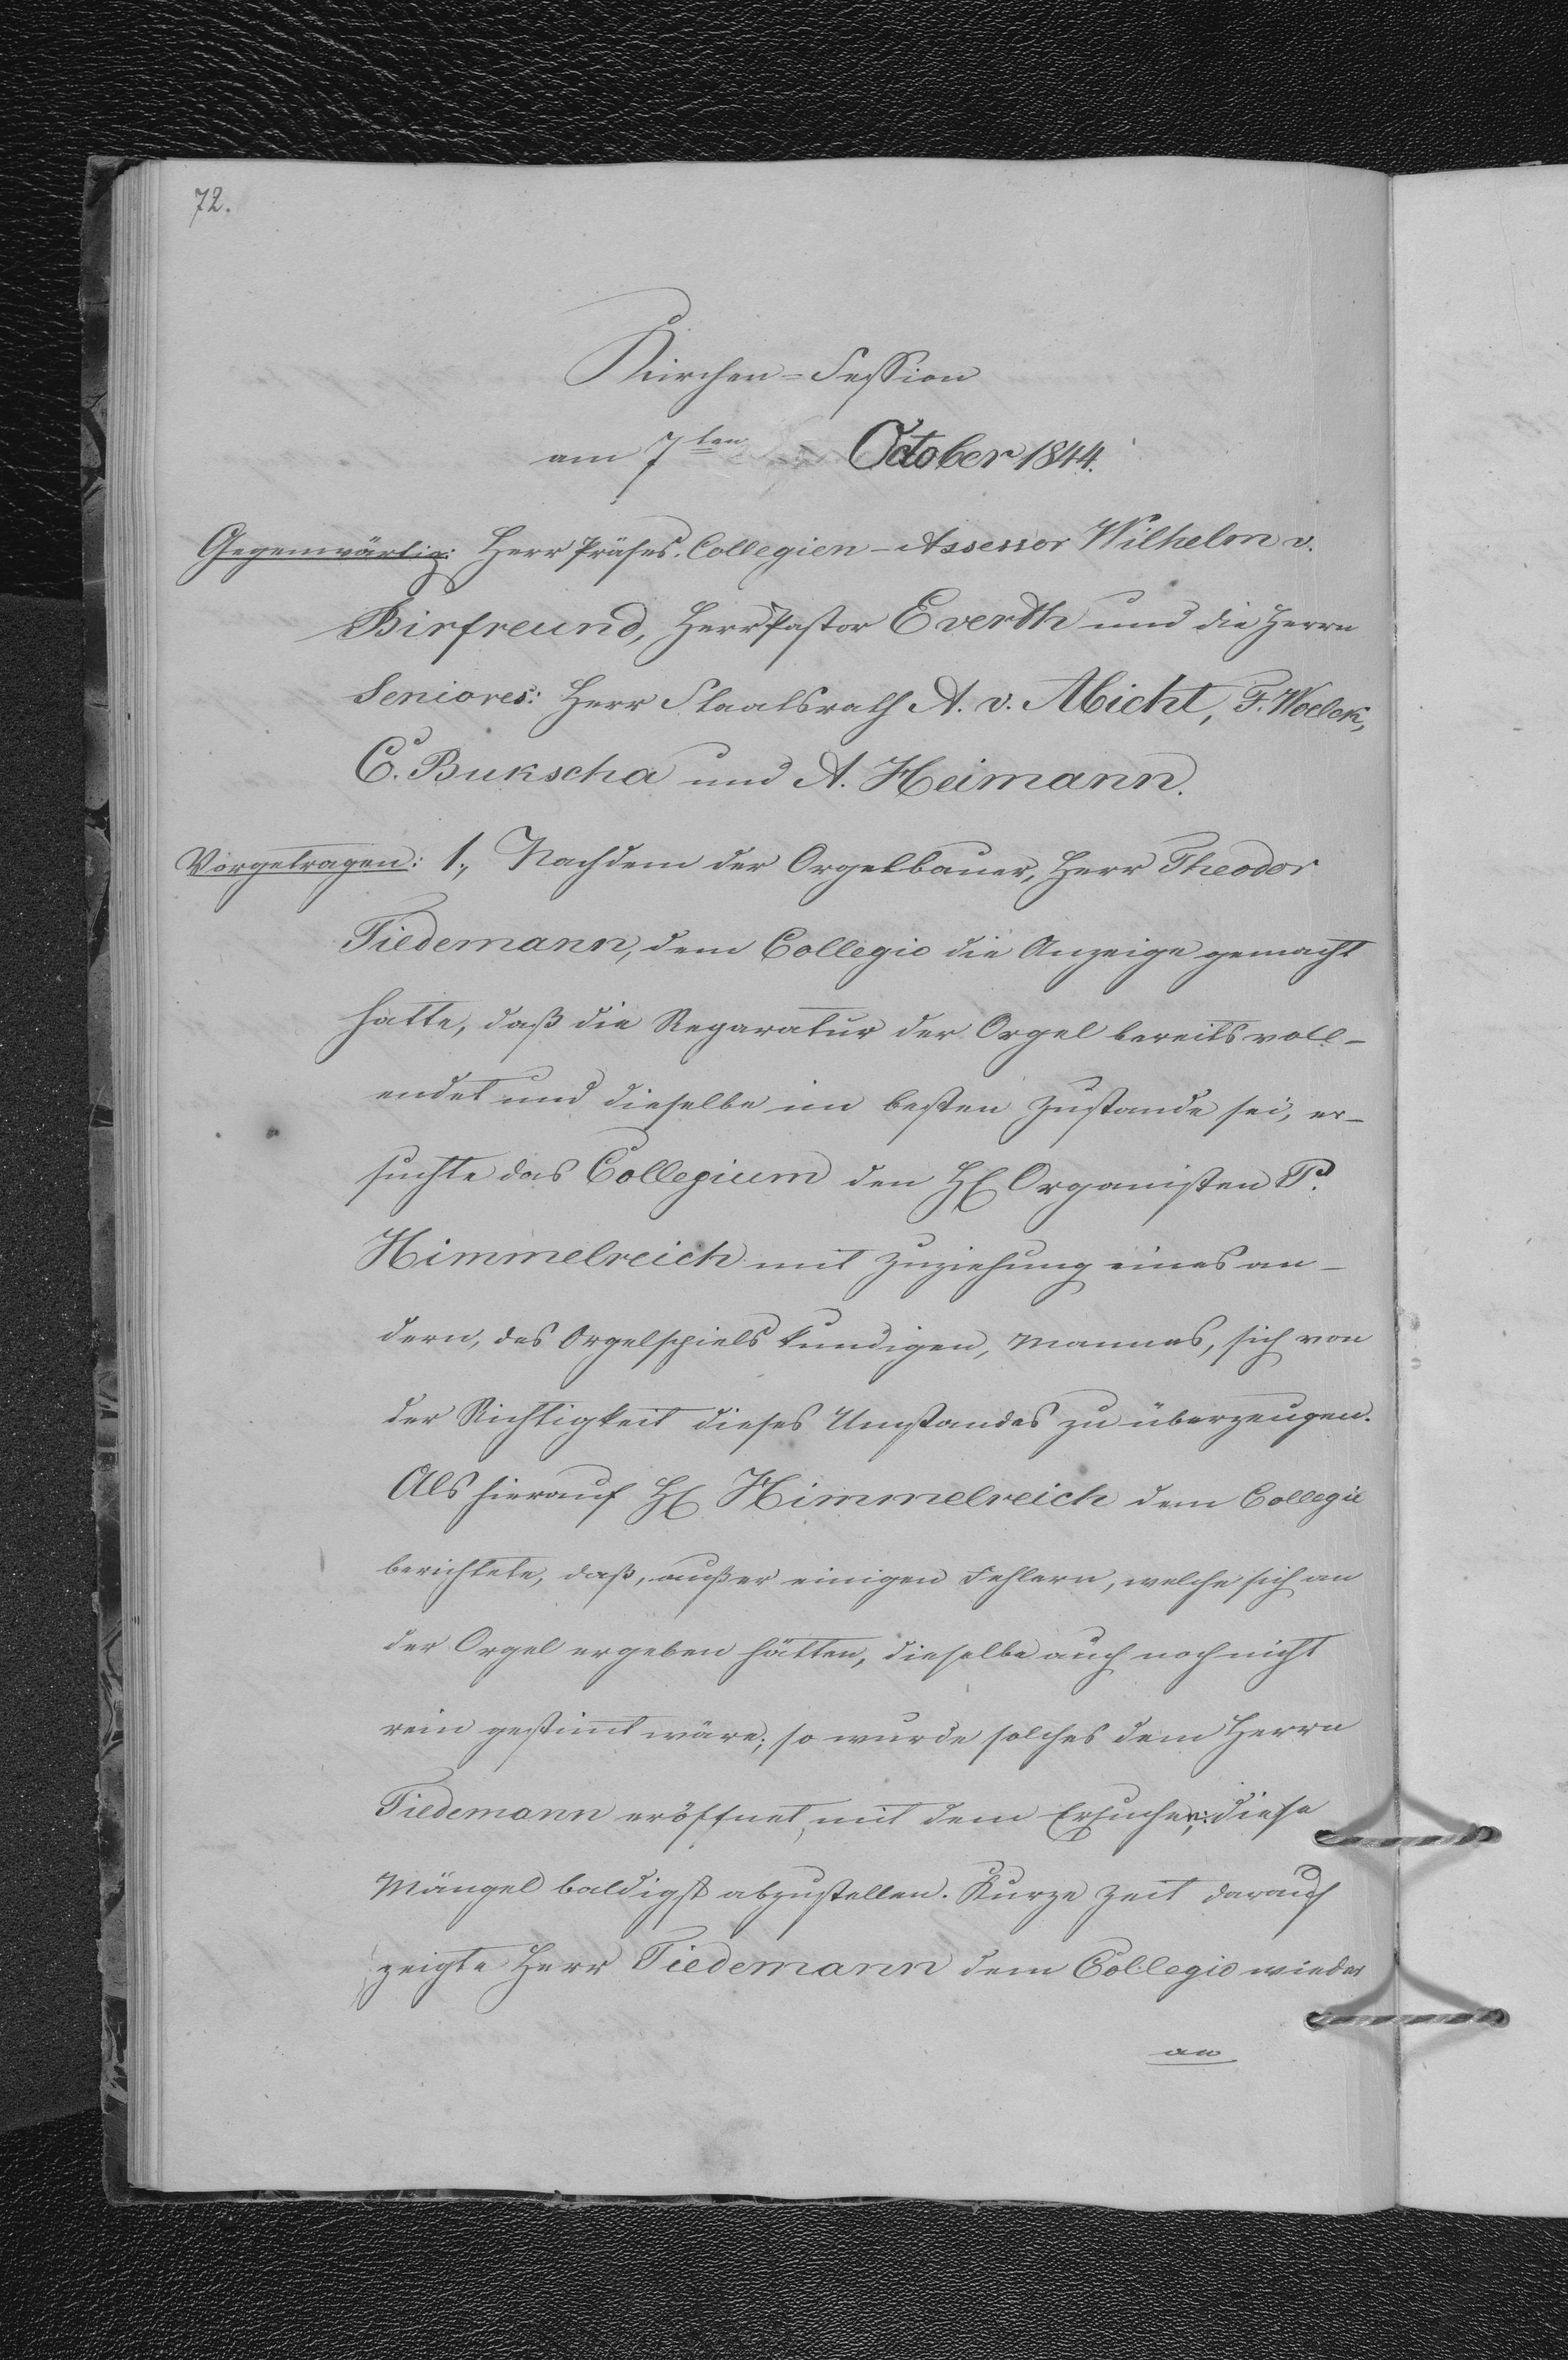 72.
Kirchen-Session
am 7ten October 1844.
Gegenwärtig: Herr Präses. Collegien-Assessor Wilhelm v.
Birfreund, Herr Pastor Everth und die Herrn
Seniores: Herr Staatsrath A. v. Abicht, F. Woelck,
C. Bukscha und A. Heimann.
Vorgetragen: 1., Nachdem der Orgelbauer, Herr Theodor
Tiedemann, dem Collegio die Anzeige gemacht
hatte, daß die Reparatur der Orgel bereits voll-
endet und dieselbe im besten Zustande sei, er-
suchte das Collegium den H. Organisten P.
Himmelreich mit Zuziehung eines an-
dern, des Orgelspiels kundigen, Mannes, sich von
der Richtigkeit dieses Umstandes zu überzeugen.
Als hierauf H. Himmelreich dem Collegio
berichtete, daß, außer einigen Fehlern, welche sich an
der Orgel ergeben hätten, dieselbe auch noch nicht
rein gestimt wäre; so wurde solches dem Herrn
Tiedemann eröffnet, mit dem Ersuchen: diese
Mängel baldigst abzustellen. Kurze Zeit darauf
zeigte Herr Tiedemann dem Collegio wieder
an